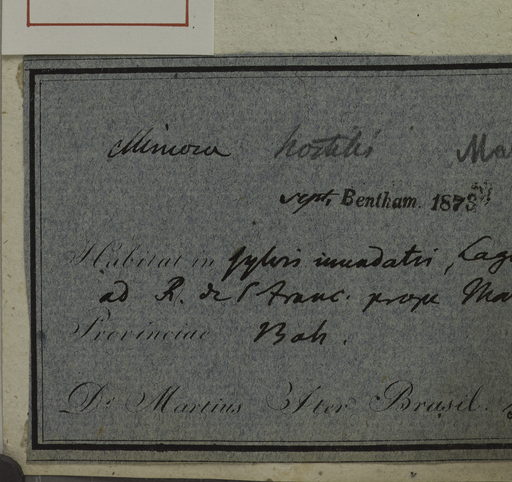 Mimosa hostilis Ma
sept. Bentham. 1873
Habitat in sylvis inundatis, Lag
ad R. de S Franc. prope Ma
Provinciae Bah.
Dr. Martius Iter Brasil.